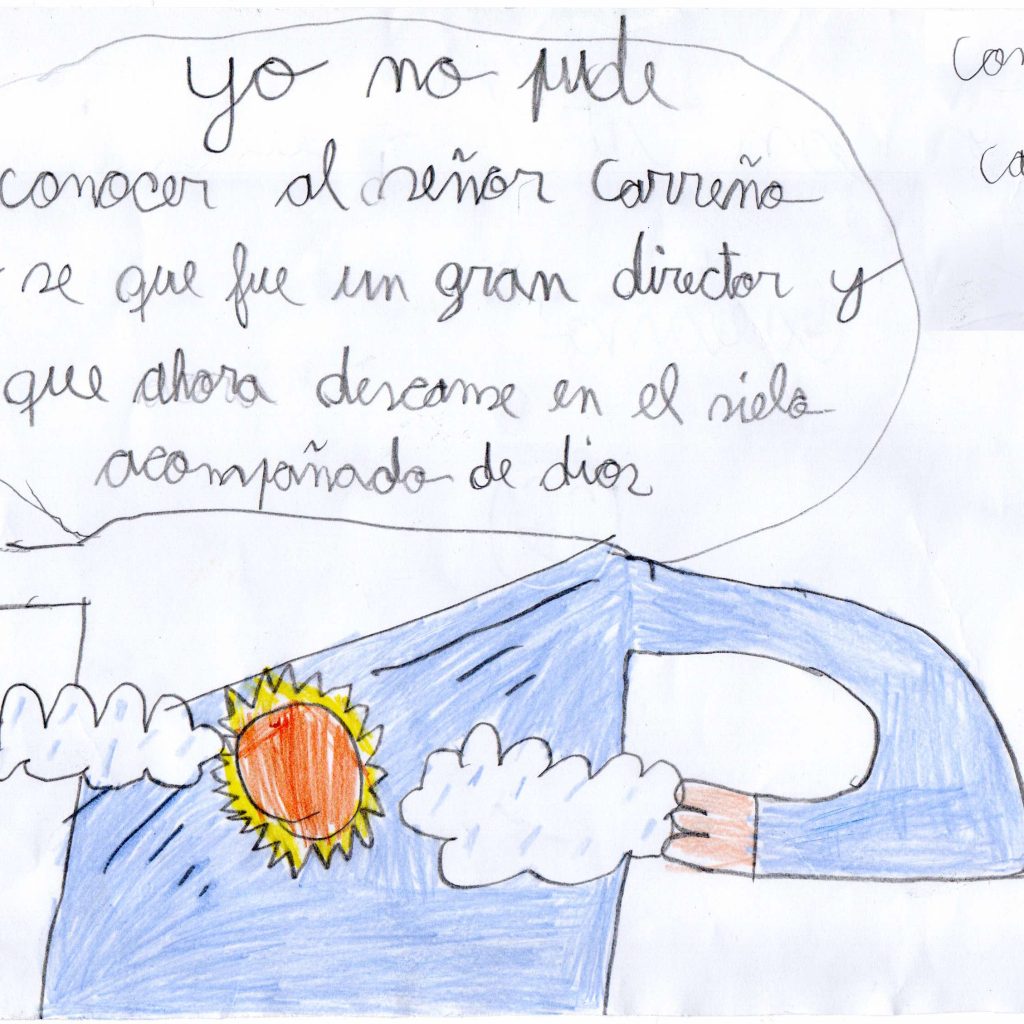 yo no pude
conocer al señor Carreño
se que fue un gran director y
que ahora descanse en el sielo
acompañado de dios
con
ca